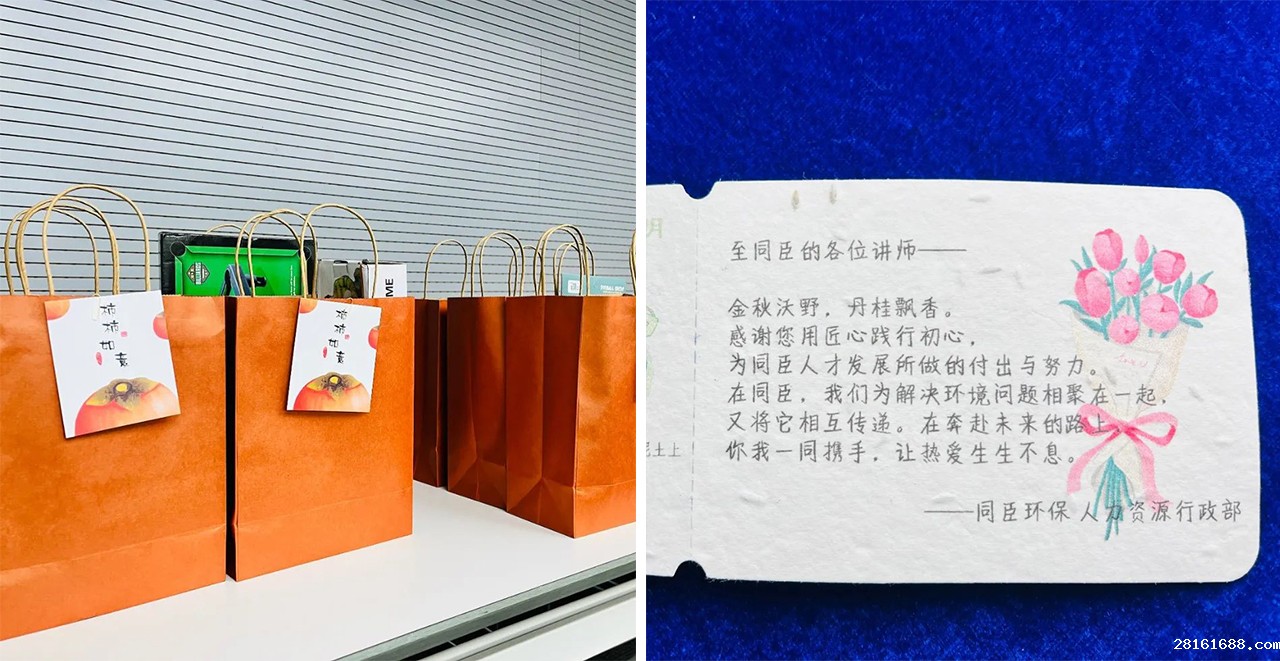 柿
柿
如
意
柿
柿
如
意
ME
月
至同臣的各位讲师——
金秋沃野，丹桂飘香。
感谢您用匠心践行初心，
为同臣人才发展所做的付出与努力。
在同臣，我们为解决环境问题相聚在一起，
又将它相互传递。在奔赴未来的路上，
你我一同携手，让热爱生生不息。
——同臣环保 人力资源行政部
土上
28161688.com